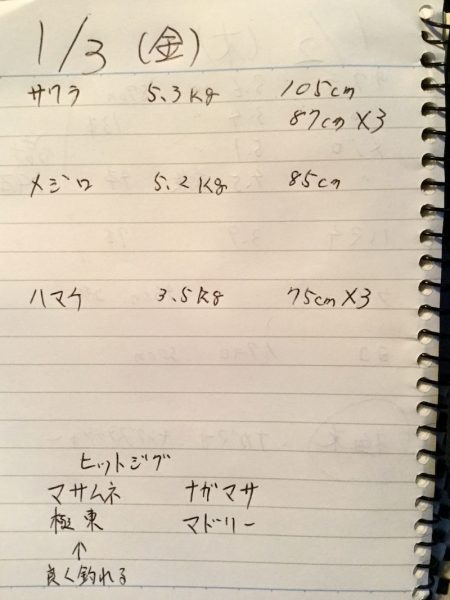 1/3 (金)
サワラ 5.3kg 105cm
87cm×3
メジロ 5.2kg 85cm
ハマチ 3.5kg 75cm×3
ヒットジグ
マサムネ ナガマサ
極東 マドリー
↑
良く釣れる